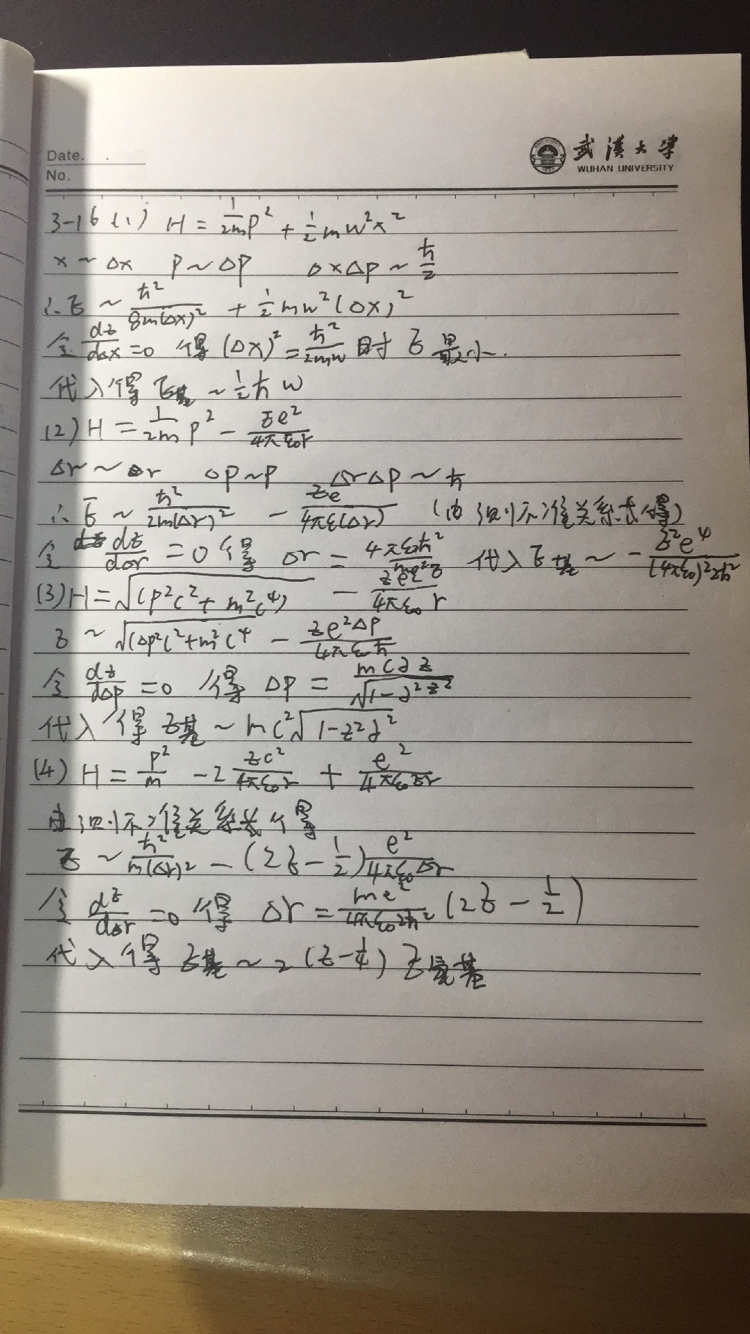 Date.
No.
武漢大学
WUHAN UNIVERSITY
3-16 (1) H = \frac{1}{2m}p^2 + \frac{1}{2}mw^2x^2
x ~ Δx  p ~ Δp  ΔxΔp ~ \frac{ħ}{2}
∴ E ~ \frac{ħ^2}{8m(Δx)^2} + \frac{1}{2}mw^2(Δx)^2
令 \frac{dE}{dΔx} = 0 得 (Δx)^2 = \frac{ħ^2}{2mw} 时 E 最小.
代入得 E基 ~ \frac{1}{2}ħw
(2) H = \frac{1}{2m}p^2 - \frac{Ze^2}{4πε_0r}
Δr ~ Δr  Δp ~ p  ΔrΔp ~ ħ
∴ E ~ \frac{ħ^2}{2m(Δr)^2} - \frac{Ze}{4πε(Δr)} (由测不准关系式得)
令 \frac{dE}{dΔr} = 0 得 Δr = \frac{4πε_0ħ^2}{} 代入 E基 ~ -\frac{Z^2e^4}{(4πε_0)^22ħ^2}
(3) H = \sqrt{(p^2c^2 + m^2c^4)} - \frac{Ze^2}{4πε_0r}
E ~ \sqrt{(Δp^2c^2 + m^2c^4} - \frac{Ze^2Δp}{4πε_0ħ}
令 \frac{dE}{dΔp} = 0 得 Δp = \frac{mcαZ}{\sqrt{1-α^2Z^2}}
代入得 E基 ~ mc^2\sqrt{1-Z^2α^2}
(4) H = \frac{p^2}{m} - 2\frac{Ze^2}{4πε_0r} + \frac{e^2}{4πε_0Δr}
由测不准关系式得
E ~ \frac{ħ^2}{m(Δr)^2} - (2Z - \frac{1}{2})\frac{e^2}{4πε_0Δr}
令 \frac{dE}{dΔr} = 0 得 Δr = \frac{me^2}{4πε_02ħ^2}(2Z - \frac{1}{2})
代入得 E基 ~ 2(Z - \frac{1}{4})E氢基